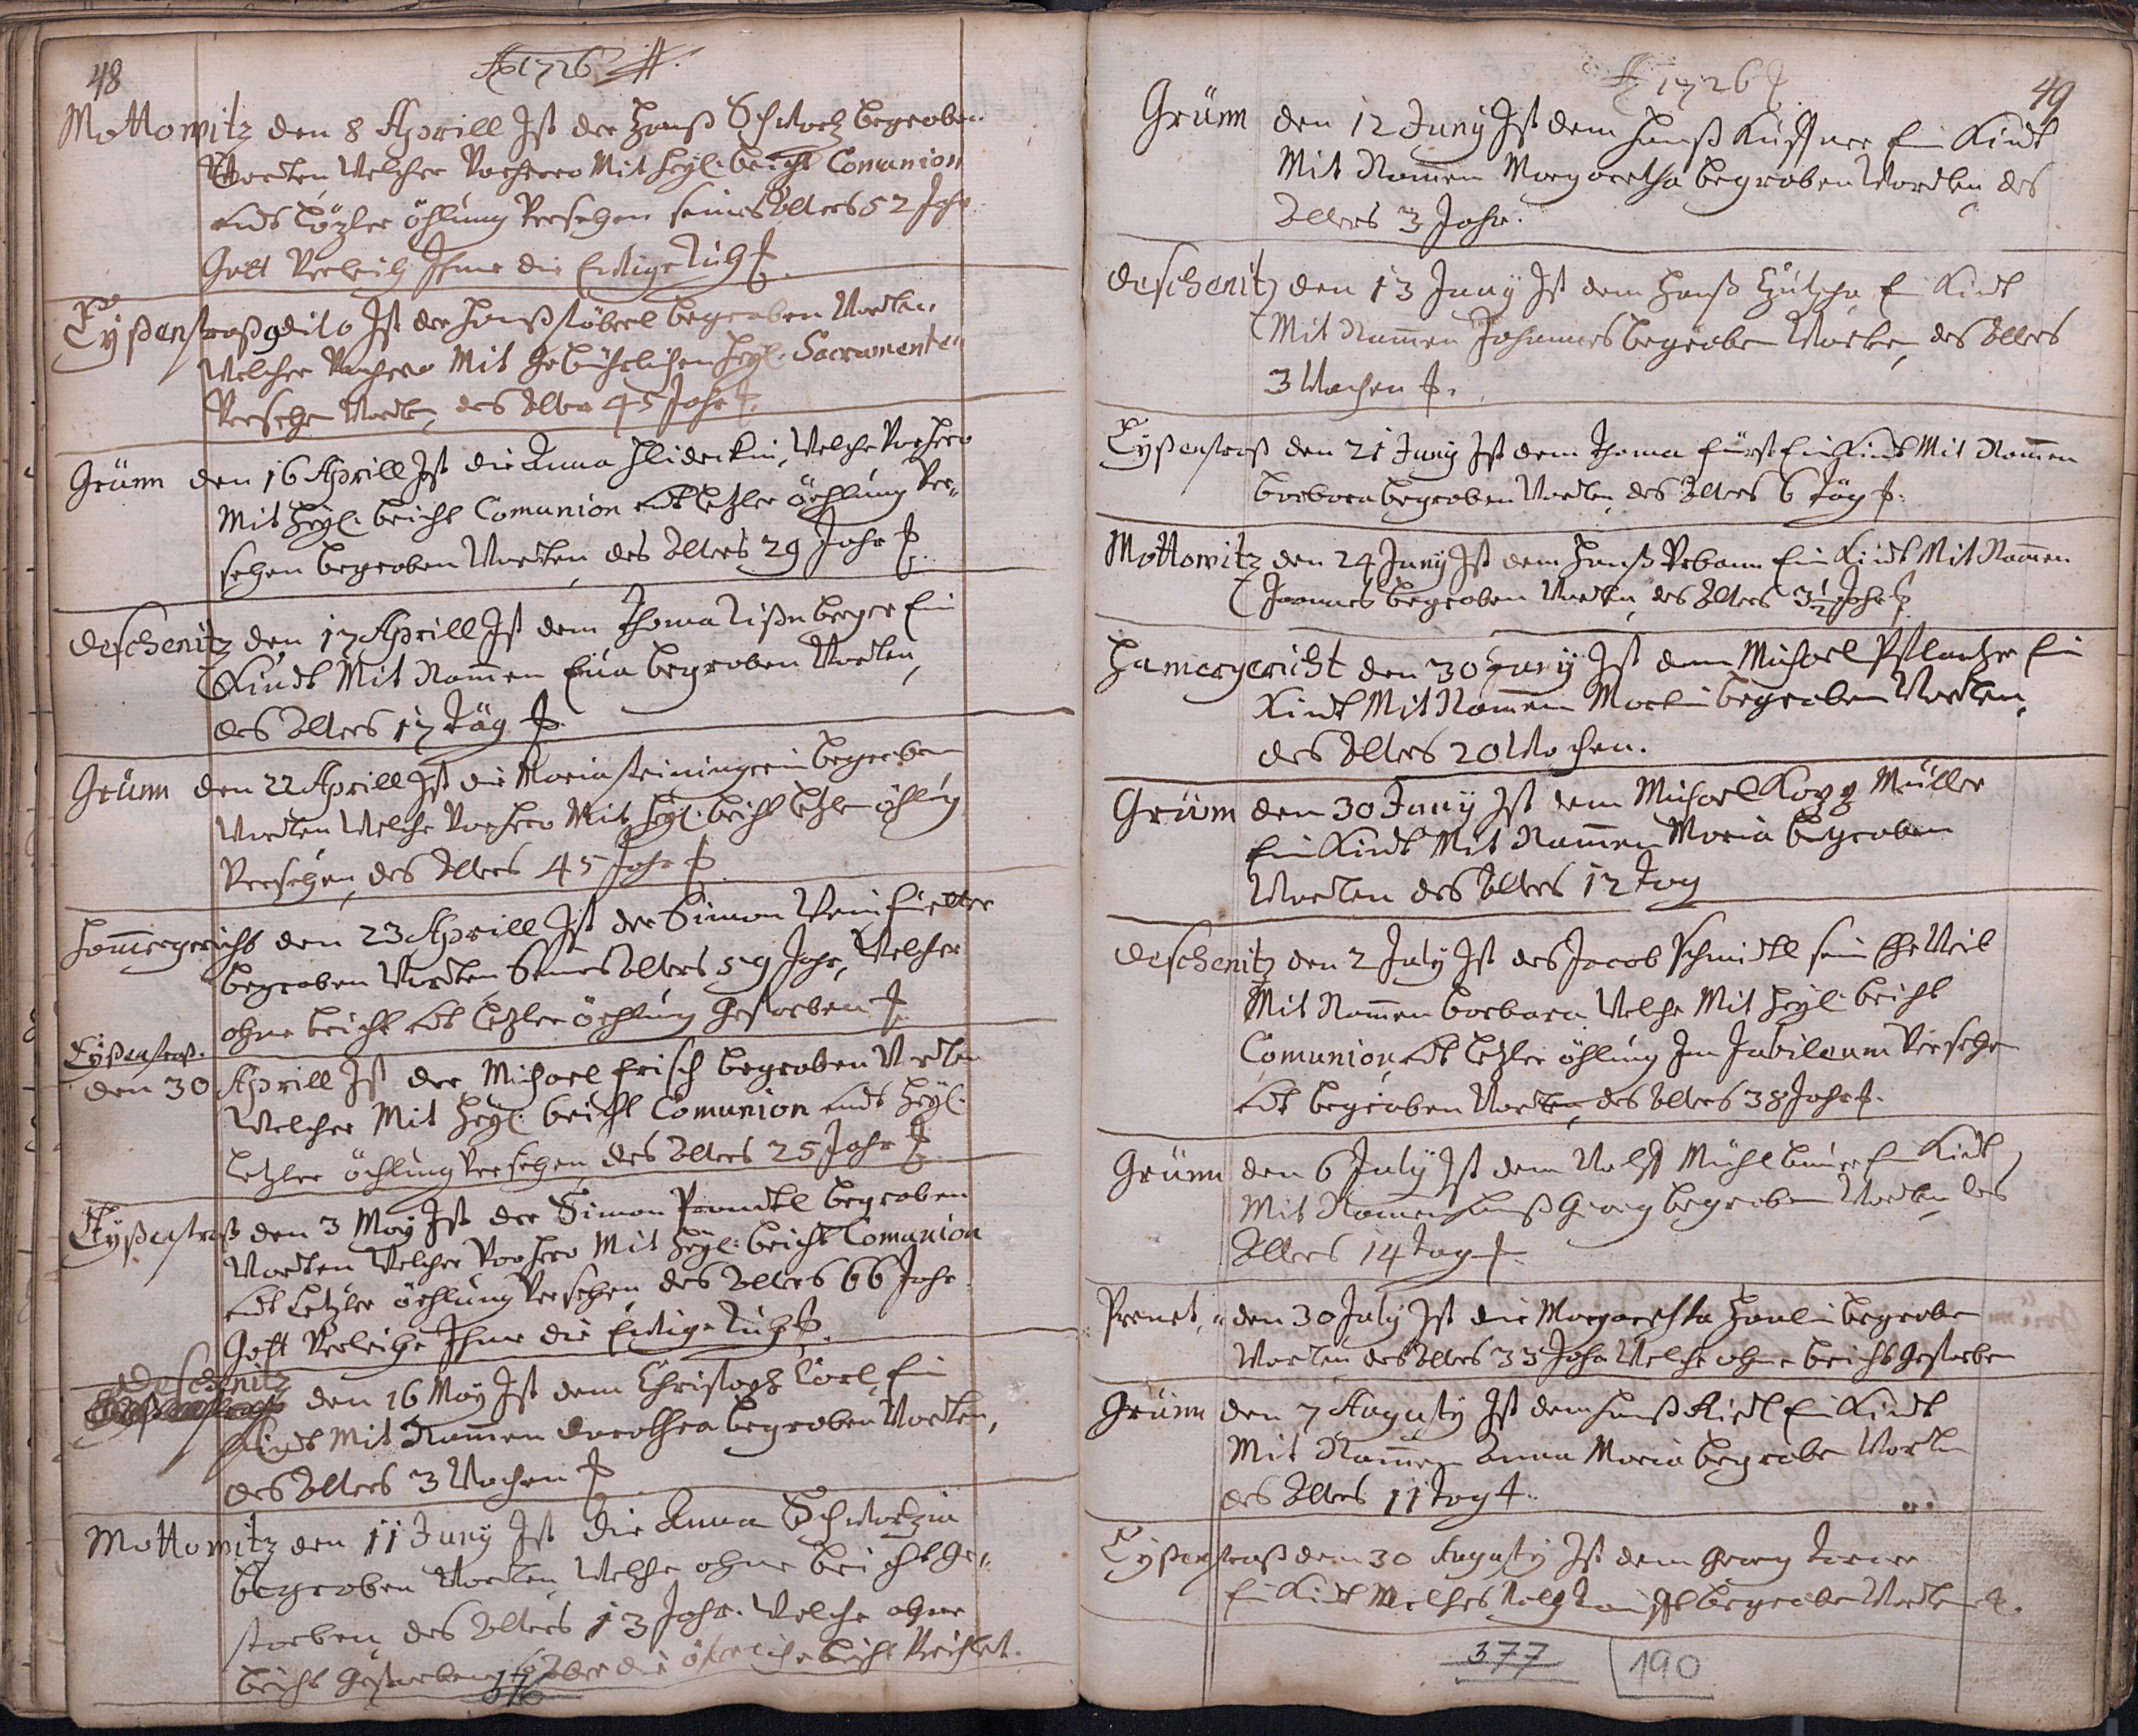 48
Ao 1726
Mottowitz den 8 Aprill Ist der Hanß Schwartz begraben
Worden, Welcher Vorhero Mit heyl: beicht Comunion
undt Lözter öhlung Versehen seines Alters 52 Jahr
Gott Verleich Ihme die Ewige Ruh
Eyßenstraß dito Ist der Hanß begraben Worden,
Welcher Vorhero Mit gebührlichen Heyl: Sacramenten
Versehen Worden, des Alters 45 Jahr
Grünn den 16 Aprill Ist die Anna, Welche Vorhero
Mit heyl: beicht Comunion undt Letzter öhlung Ver=
sehen begraben Worden, des Alters 29 Jahr
Deschenitz den 17 Aprill Ist dem Thoma Ein
Kindt Mit Nammen Eua begraben Worden,
des Alters 17 Täg
Grünn den 22 Aprill Ist die Maria begraben
Worden Welche Vorhero Mit heyl: beicht letzter öhlung
Versehen, des Alters 45 Jahr
Hammergericht den 23 Aprill Ist der Simon
begraben Worden Seines Alters 59 Jahr, Welcher
ohne beicht undt letzter öhlung Gestorben
Eyßenstraß.
den 30 Aprill Ist der Michael Frisch begraben Worden
Welcher Mit Heyl: beicht Comunion undt Heyl:
Letzter öhlung Versehen, des Alters 25 Jahr
Eyßenstraß den 3 May Ist der Simon begraben
Worden Welcher Vorhero Mit Heyl: beicht Comunion
undt Letzter öhlung Versehen des Alters 66 Jahr
Gott Verleihe Ihme die Ewige Ruh
Deschenitz
den 16 May Ist dem Christoph Ein
Kindt Mit Nammen Dorothea begraben Worden,
des Alters 3 Wochen
Mottowitz den 11 Juny Ist die Anna Schwartzin
begraben Worden Welche ohne beicht ge=
storben des Alters 13 Jahr. Welche ohne
beicht gestorben, aber die beicht
376
Ao 1726
49
Grünn den 12 Juny Ist dem Hanß Ein Kindt
Mit Nammen Margaretha begraben Worden, des
Alters 3 Jahr.
Deschenitz den 13 Juny Ist dem Hanß Ein Kindt
Mit Nammen Johannes begraben Worden, des Alters
3 Wochen
Eyßenstraß den 21 Juny Ist dem Thoma Fürst Ein Kindt Mit Nammen
Barbara begraben Worden, des Alters 6 Täg
Mottowitz den 24 Juny Ist dem Hanß Urbann Ein Kindt Mit Nammen
Joannes begraben Worden, des Alters 3½ Jahr
Hamergericht den 30 Juny Ist dem Michael Ein
Kindt Mit Nammen Martin begraben Worden,
des Alters 20 Wochen.
Grünn den 30 Juny Ist dem Michael Müller
Ein Kindt Mit Nammen Maria begraben
Worden des Alters 12 Tag
Deschenitz den 2 July Ist des Jacob Schmidtl sein Eheweib
Mit Nammen Barbara Welche Mit Heyl: beicht
Comunion, undt letzter öhlung Im Jubilaeum Versehen
undt begraben Worden, des Alters 38 Jahr
Grünn den 6 July Ist dem Wolff Mühlbaur Ein Kindt
Mit Nammen Hanß Georg begraben Worden, des
Alters 14 Tag
Prenet, den 30 July Ist die Margaretha begraben
Worden, des Alters 33 Jahr Welche ohne beicht gestorben
Grünn den 7 Augusty Ist dem Hanß Riedl Ein Kindt
Mit Nammen Anna Maria begraben Worden
des Alters 11 Tag
Eyßenstraß den 30 Augusty Ist dem Georg
Ein Kindt Welches begraben Worden
377
190